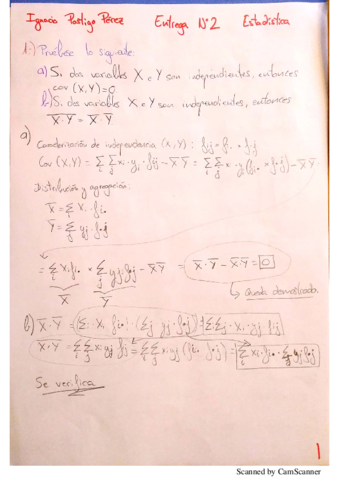 Ignacio Postigo Pérez Entrega Nº2 Estadística
1.-) Pruébese lo siguiente
a) Si dos variables X e Y son independientes, entonces
cov (X,Y)=0
b) Si dos variables X e Y son independientes, entonces
X̅·Y̅ = X̅ · Y̅
a)
Condición de independencia (X,Y) : fij = fi. · f.j
Cov (X,Y) = Σi Σj xi · yj · fij - X̅Y̅ = Σi Σj xi · yj (fi. × f.j) - X̅Y̅
Distribución y agregación:
X̅ = Σi xi · fi.
Y̅ = Σj yj · f.j
= Σi xi fi. × Σj yj f.j - X̅Y̅ = X̅·Y̅ - X̅Y̅ = 0
X̅ Y̅
↳ Queda demostrado
b) X̅·Y̅ = (Σi xi fi.) · (Σj yj · f.j) = Σi Σj · xi · yj fij
X̅·Y̅ = Σi Σj xi yj fij = Σi Σj xi yj (fi. f.j) = Σi xi · fi. · Σj yj f.j
Se verifica
1
Scanned by CamScanner